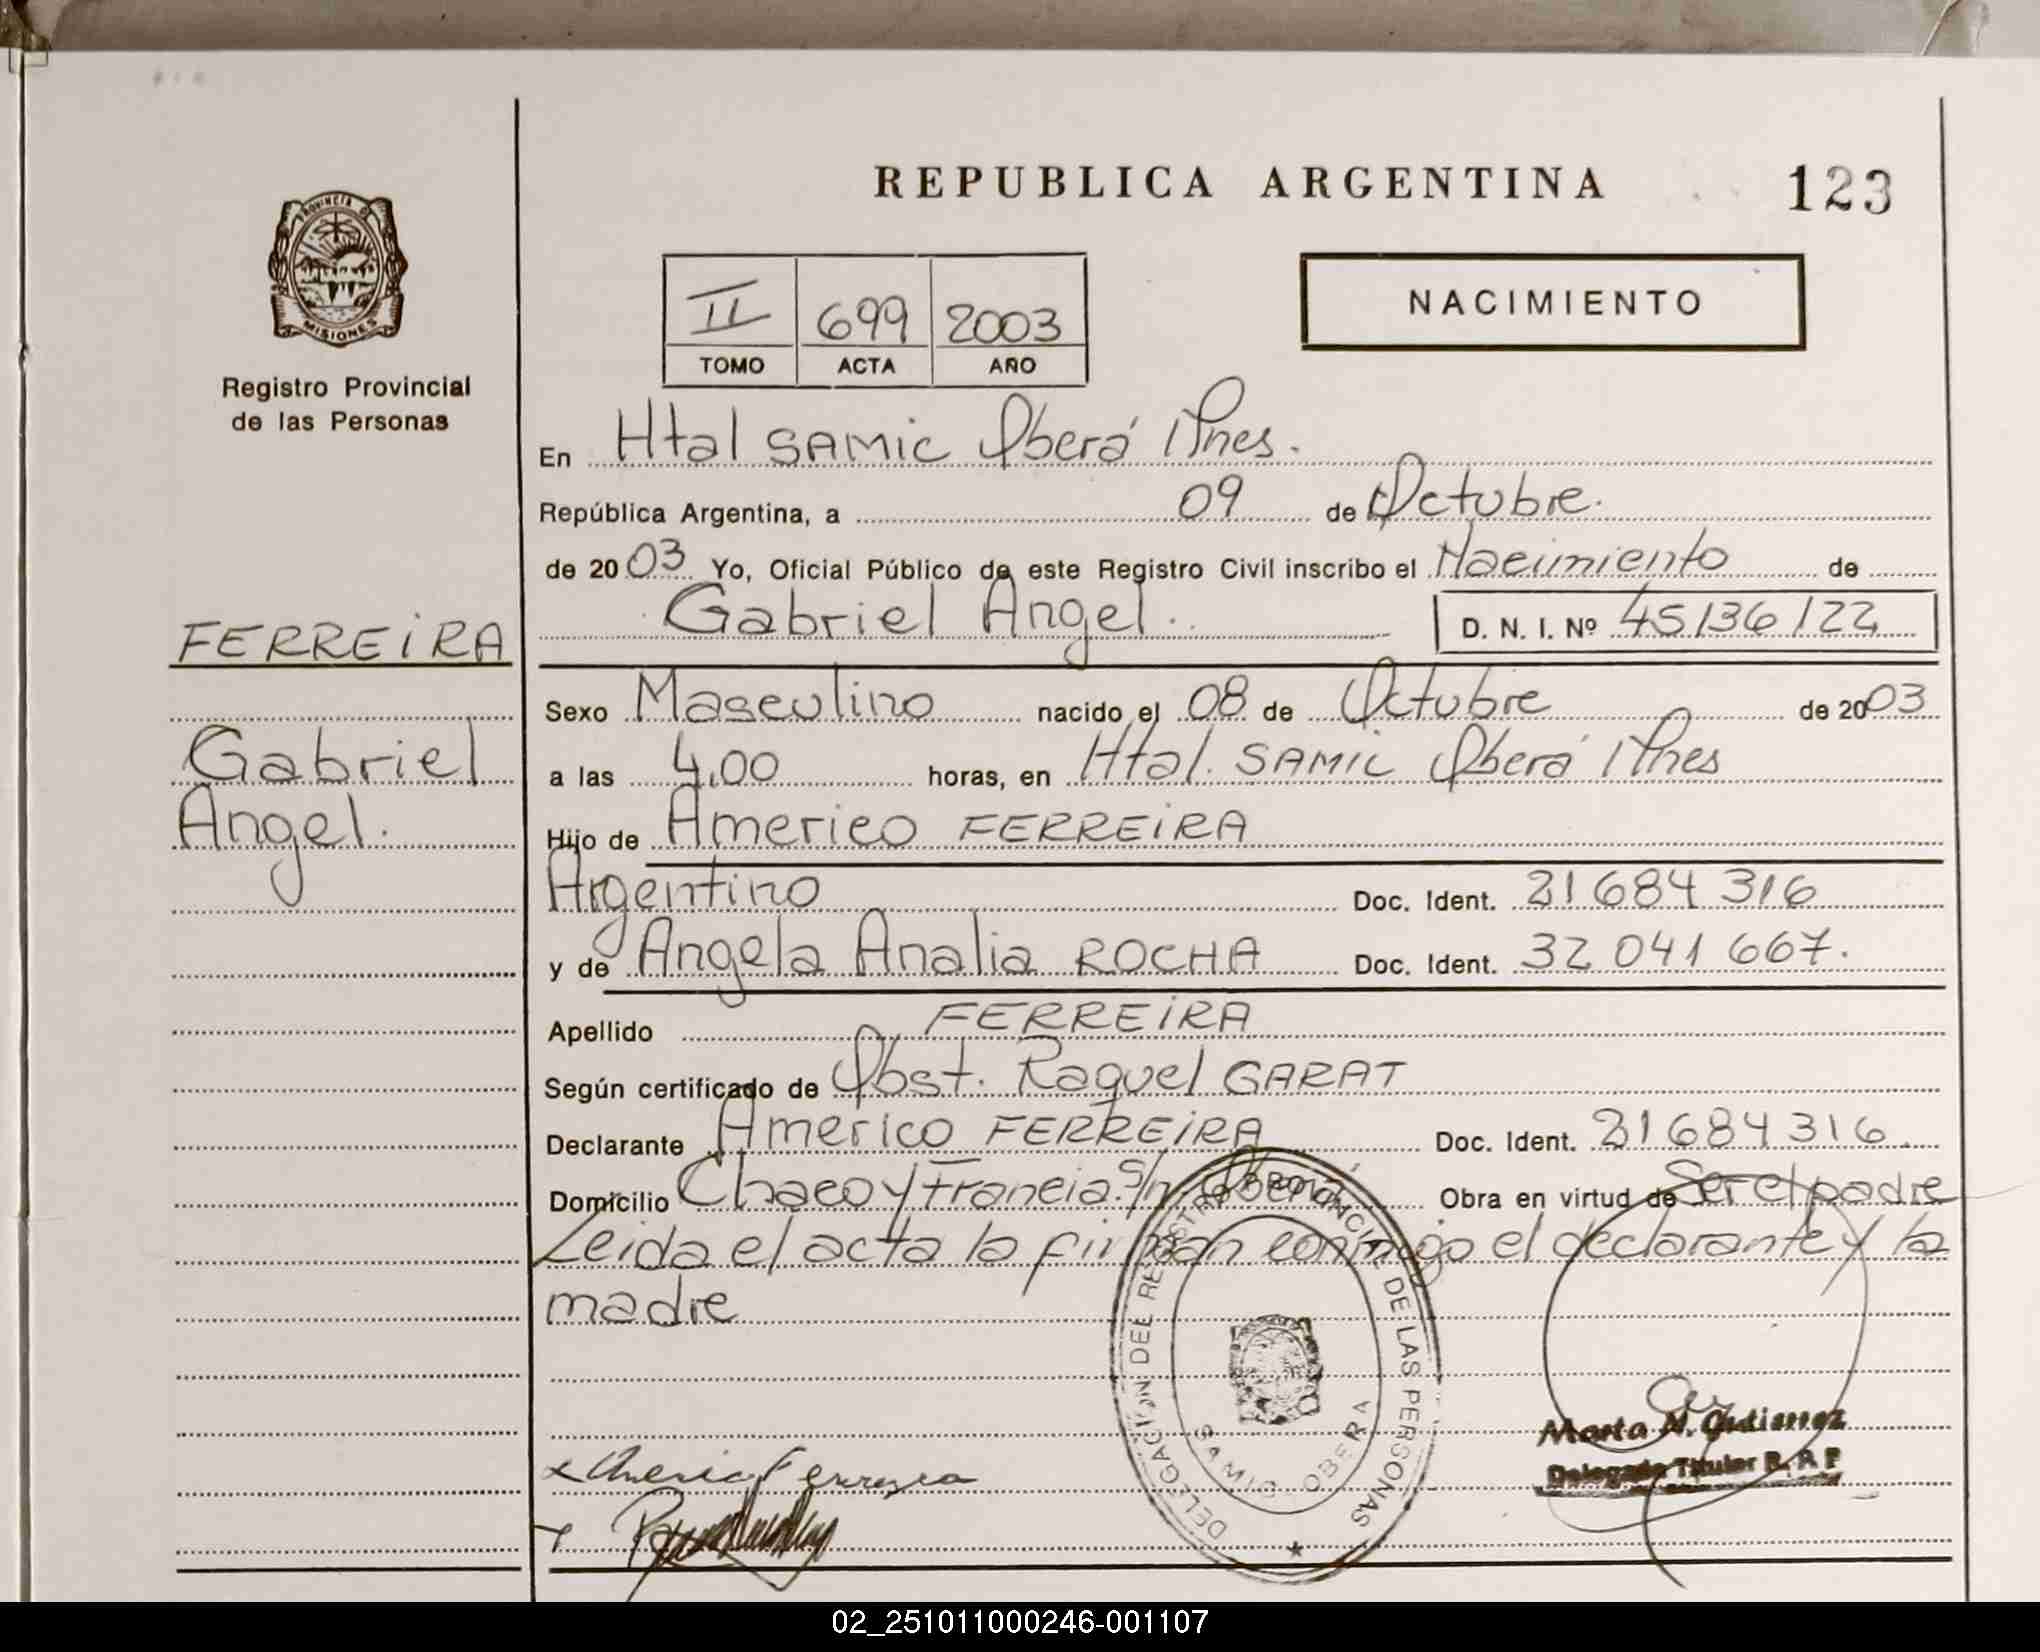 REPUBLICA ARGENTINA
123
PROVINCIA DE
MISIONES
Registro Provincial
de las Personas
II 699 2003
TOMO ACTA AÑO
NACIMIENTO
En Htal SAMIC Oberá Mnes.
República Argentina, a 09 de Octubre.
de 2003 Yo, Oficial Público de este Registro Civil inscribo el Nacimiento de
Gabriel Angel. D. N. I. Nº 45136122
FERREIRA
Gabriel
Angel.
Sexo Masculino nacido el 08 de Octubre de 2003
a las 4,00 horas, en Htal. SAMIC Oberá Mnes
Hijo de Americo FERREIRA
Argentino Doc. Ident. 21684316
y de Angela Analia ROCHA Doc. Ident. 32 041 667.
Apellido FERREIRA
Según certificado de Obst. Raquel GARAT
Declarante Americo FERREIRA Doc. Ident. 21684316
Domicilio Chaco y Francia S/n Oberá Obra en virtud de Ser el padre
Leida el acta la firman conmigo el declarante y la
madre
DELEGACION DEL REGISTRO PROVINCIAL DE LAS PERSONAS
SAMIC OBERA
Marta N. Gutierrez
Delegada Titular R. P. P
02_251011000246-001107